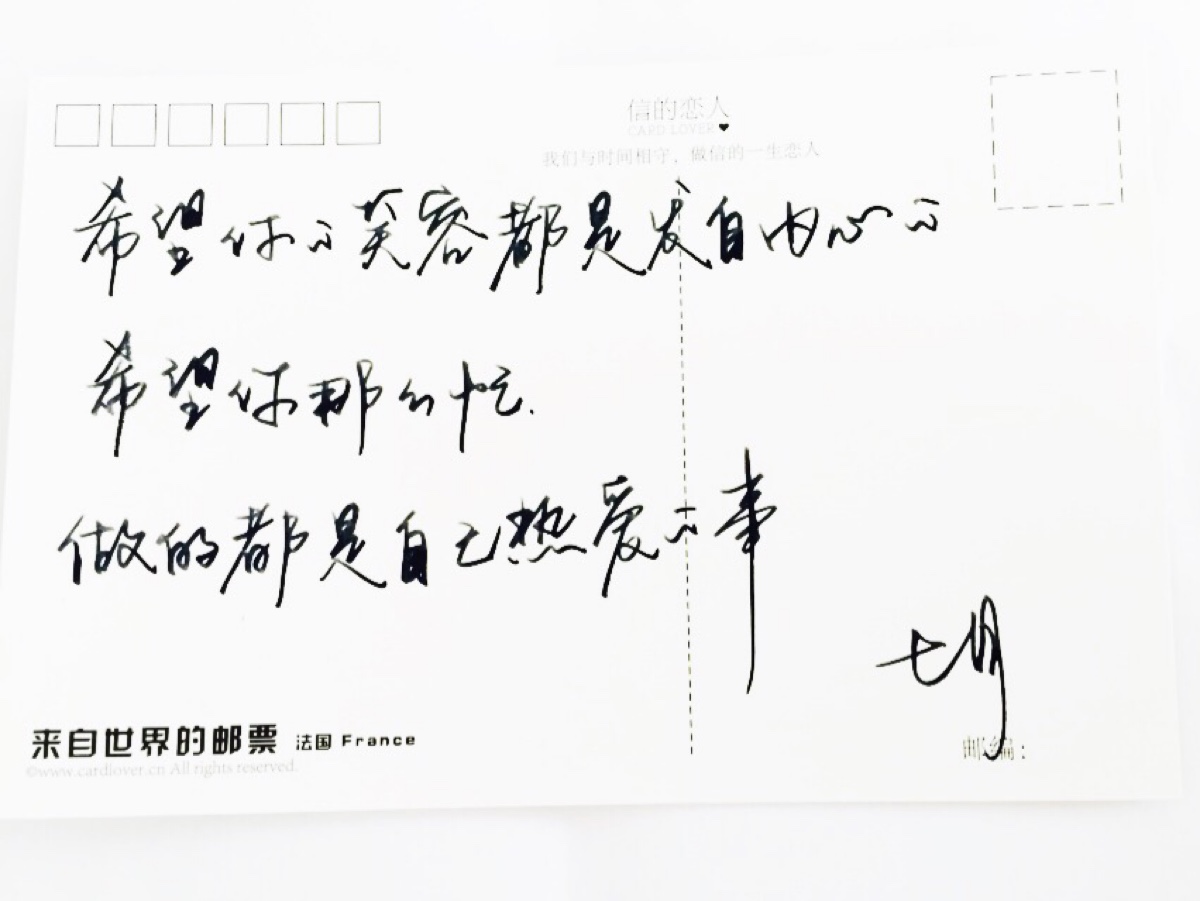 信的恋人
CARD LOVER
我们与时间相守，做信的一生恋人
希望你的笑容都是发自内心的
希望你那么忙.
做的都是自己热爱的事
七月
来自世界的邮票 法国 France
©www.cardlover.cn All rights reserved.
邮编：